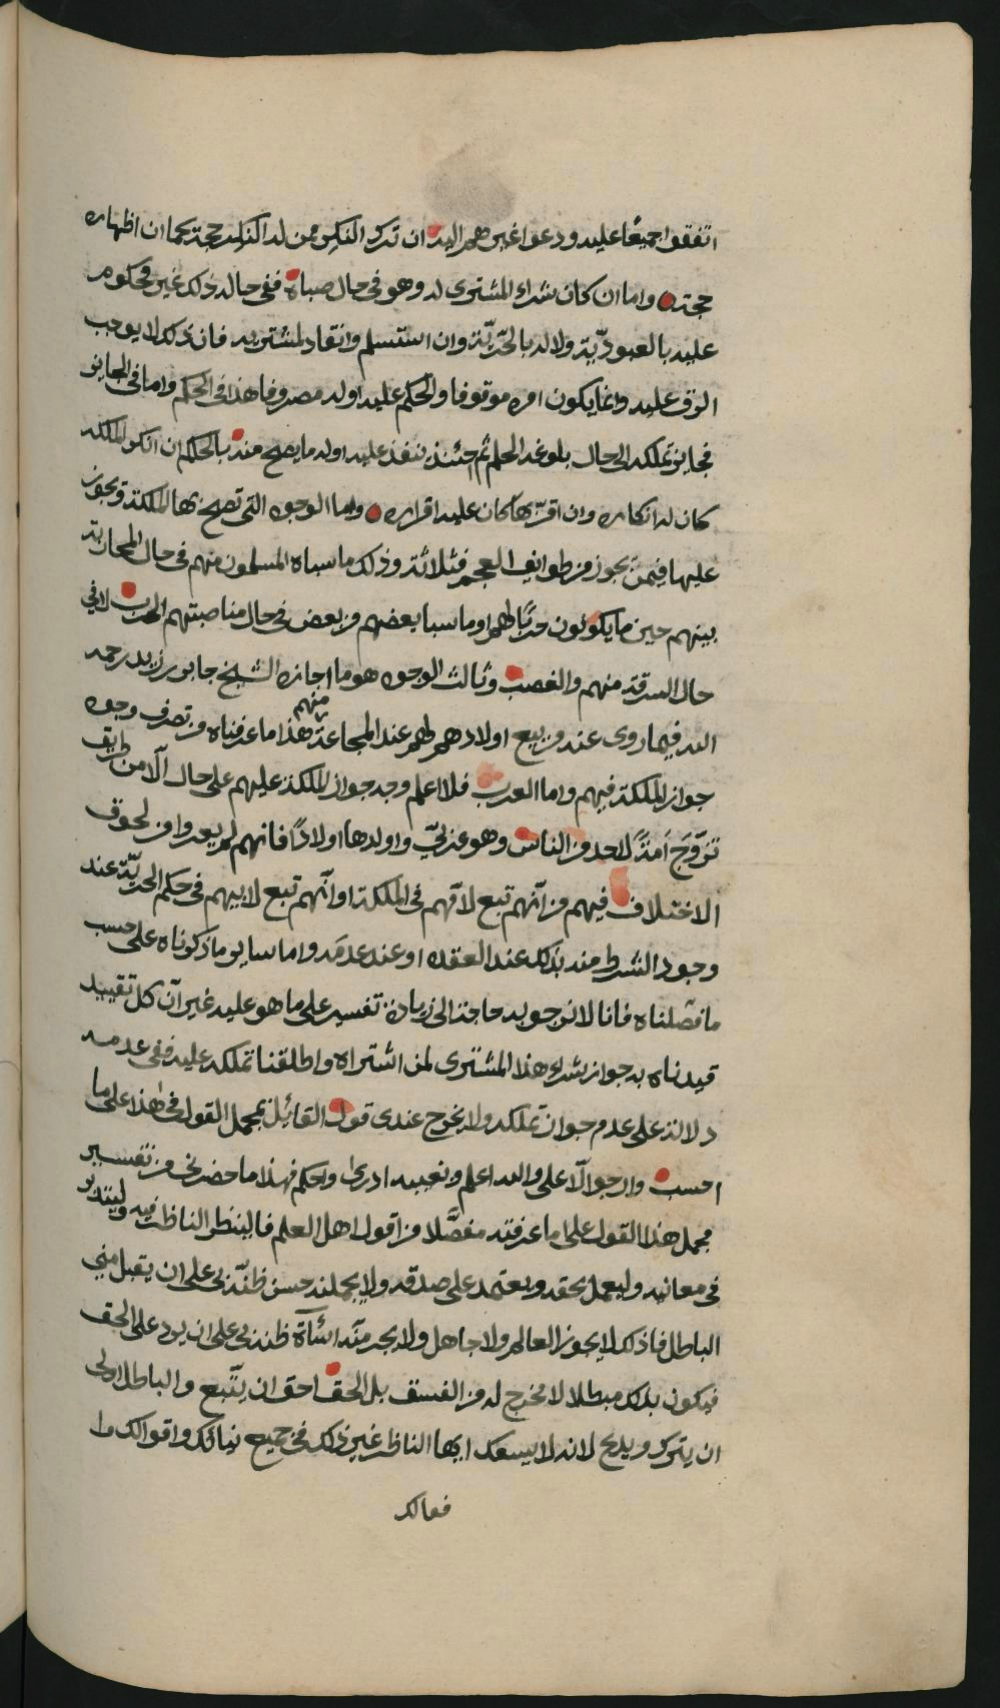 اتفقوا جميعا عليه ودعوا غيرهم اليه ان ترك النكير ممن له النكير حجة كما ان اظهاره
حجة واما ان كان شراء المشترى له وهو في حال صباه ففي حاله ذلك غير محكوم
عليه بالعبوديّة ولا له بالحرّيّة وان استسلم وانقاد لمشتريه فان ذلك لا يوجب
الرق عليه وانما يكون امره موقوفا والحكم عليه اوله مصروفا هذا في الحكم واما في الجايز
فجايز تملكه الى حال بلوغه الحلم ثم حينئذ ينفذ عليه اوله ما يصح منه بالحكم ان انكر الملكة
كان له انكاره وان اقرّ بها كان عليه اقراره واما الوجوه التي تصح بها الملكة ويجوز
عليها فيمن يجوز من طوايف العجم فثلاثة وذلك ما سباه المسلمون منهم في حال المحاربة
بينهم حين ما يكونون حربًا لهم او ما سبا بعضهم من بعض في حال مناصبتهم الحرب لا في
حال السرقة منهم والغصب وثالث الوجوه هو ما اجازه الشيخ جابر بن زيد رحمه
الله فيما روى عنه من بيع اولادهم لهم عند المجاعة منهم هذا ما عرفناه من تصرف وجوه
جواز الملكة فيهم واما العرب فلا اعلم وجه جواز الملكة عليهم على حال الّا من طريق
تزوّج أمةً لاحد من الناس وهو عربيّ واولدها اولادًا فانهم لم يعدوا من لحوق
الاختلاف فيهم من أنهم تبع لامّهم في الملكة او أنهم تبع لابيهم في حكم الحريّة عند
وجود الشرط منه بذلك عند العقدة او عند عدمه واما ساير ما ذكرناه على حسب
ما فصّلناه فانا لا نرجو به حاجة الى زيادة تفسير على ما هو عليه غير أن كل تقييد
قيدناه به جواز شراء هذا المشترى لمن اشتراه واطلقنا تملكه عليه ففي عدمه
دلالة على عدم جواز تملكه ولا يخرج عندى قول القائل بمجمل القول في هذا على ما
احسب وارجو الّا على والله اعلم وبغيبه ادرى واحكم فهذا ما حضرنى من تفسير
مجمل هذا القول على ما عرفته مفصّلا من اقول اهل العلم فالينظر الناظر فيه وليتدبر
في معانيه وليعمل بحقه ويعتمد على صدقه ولا يحملنه حسن ظنّه بي على ان يقبل مني
الباطل فان ذلك لا يجوز لعالم ولا جاهل ولا يجرمنّه اسآة ظنه بي على ان يرد على الحق
فيكون بذلك مبطلا لا مخرج له من الفسق بل الحق احق ان يتّبع والباطل اولى
ان يترك ويدع لانه لا يسعك ايها الناظر غير ذلك في جميع نياتك واقوالك وا
فعالك